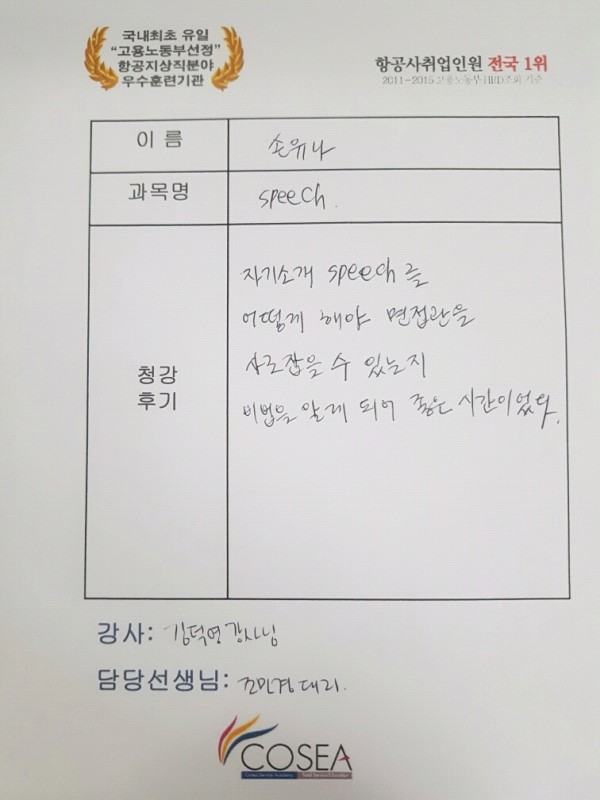 국내최초 유일
"고용노동부선정"
항공지상직분야
우수훈련기관
항공사취업인원 전국 1위
2011~2015고용노동부 HRD조회 기준
이 름
손유나
과목명
speech.
청강
후기
자기소개 speech를
어떻게 해야 면접관을
사로잡을 수 있는지
비법을 알게 되어 좋은 시간이었다.
강사: 김덕영강사님
담당선생님: 조민경대리.
COSEA